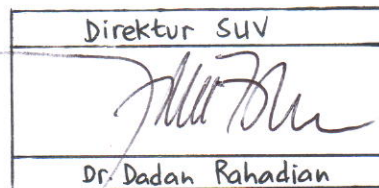 Direktur SUV
Dr. Dadan Rahadian